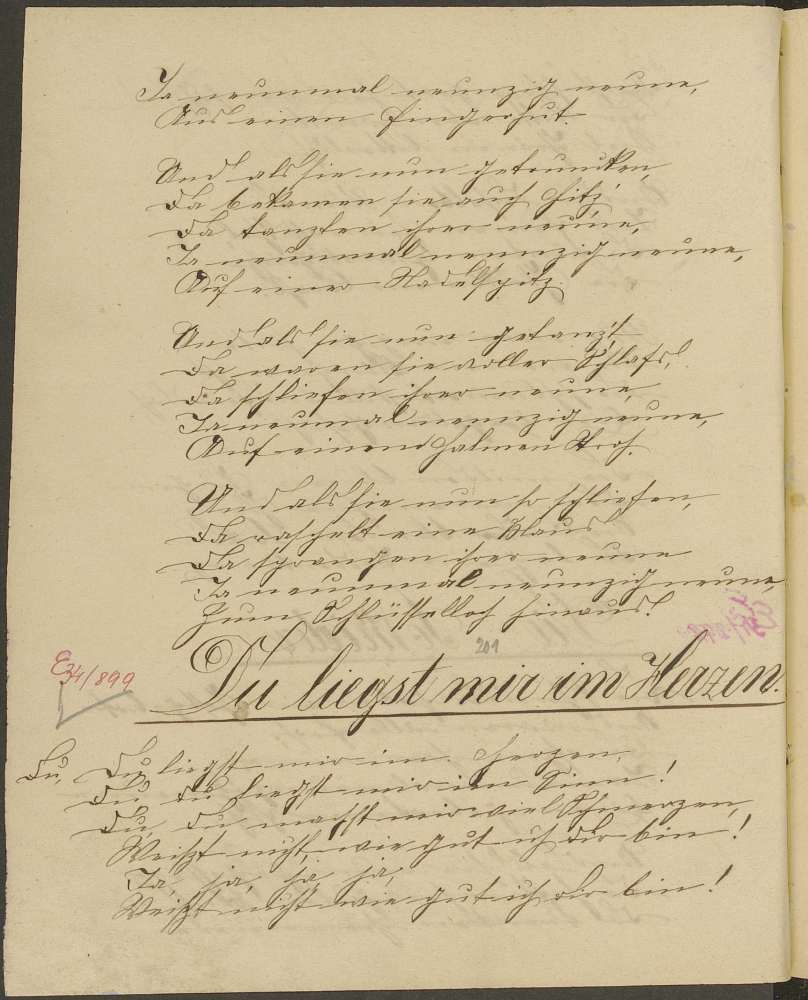 Ja neunmal neunzig neune,
Aus einen Fingerhut.
Und als sie nun getruncken,
Da bekamen sie auch Hitz,
Da tanzten ihrer neune,
Ja neunmal neunzig neune,
Auf einer Nadelspitz.
Und als sie nun getanzt,
Da waren sie voller Schlafs,
Da schliefen ihrer neune,
Ja neunmal neunzig neune,
Auf einem Halmen Stroh.
Und als sie nun so schliefen,
Da raschelt eine Maus
Da sprangen ihrer neune
Ja neunmal neunzig neune,
Zum Schlüsselloch hinaus!
201
E34/899
Du liegst mir im Herzen.
Du, Du liegst mir im Herzen,
Du, du liegst mir im Sinn!
Du, du machst mir viel Schmerzen,
Weißt nicht, wie gut ich dir bin!
Ja, ja, ja, ja,
Weißt nicht wie gut ich dir bin!